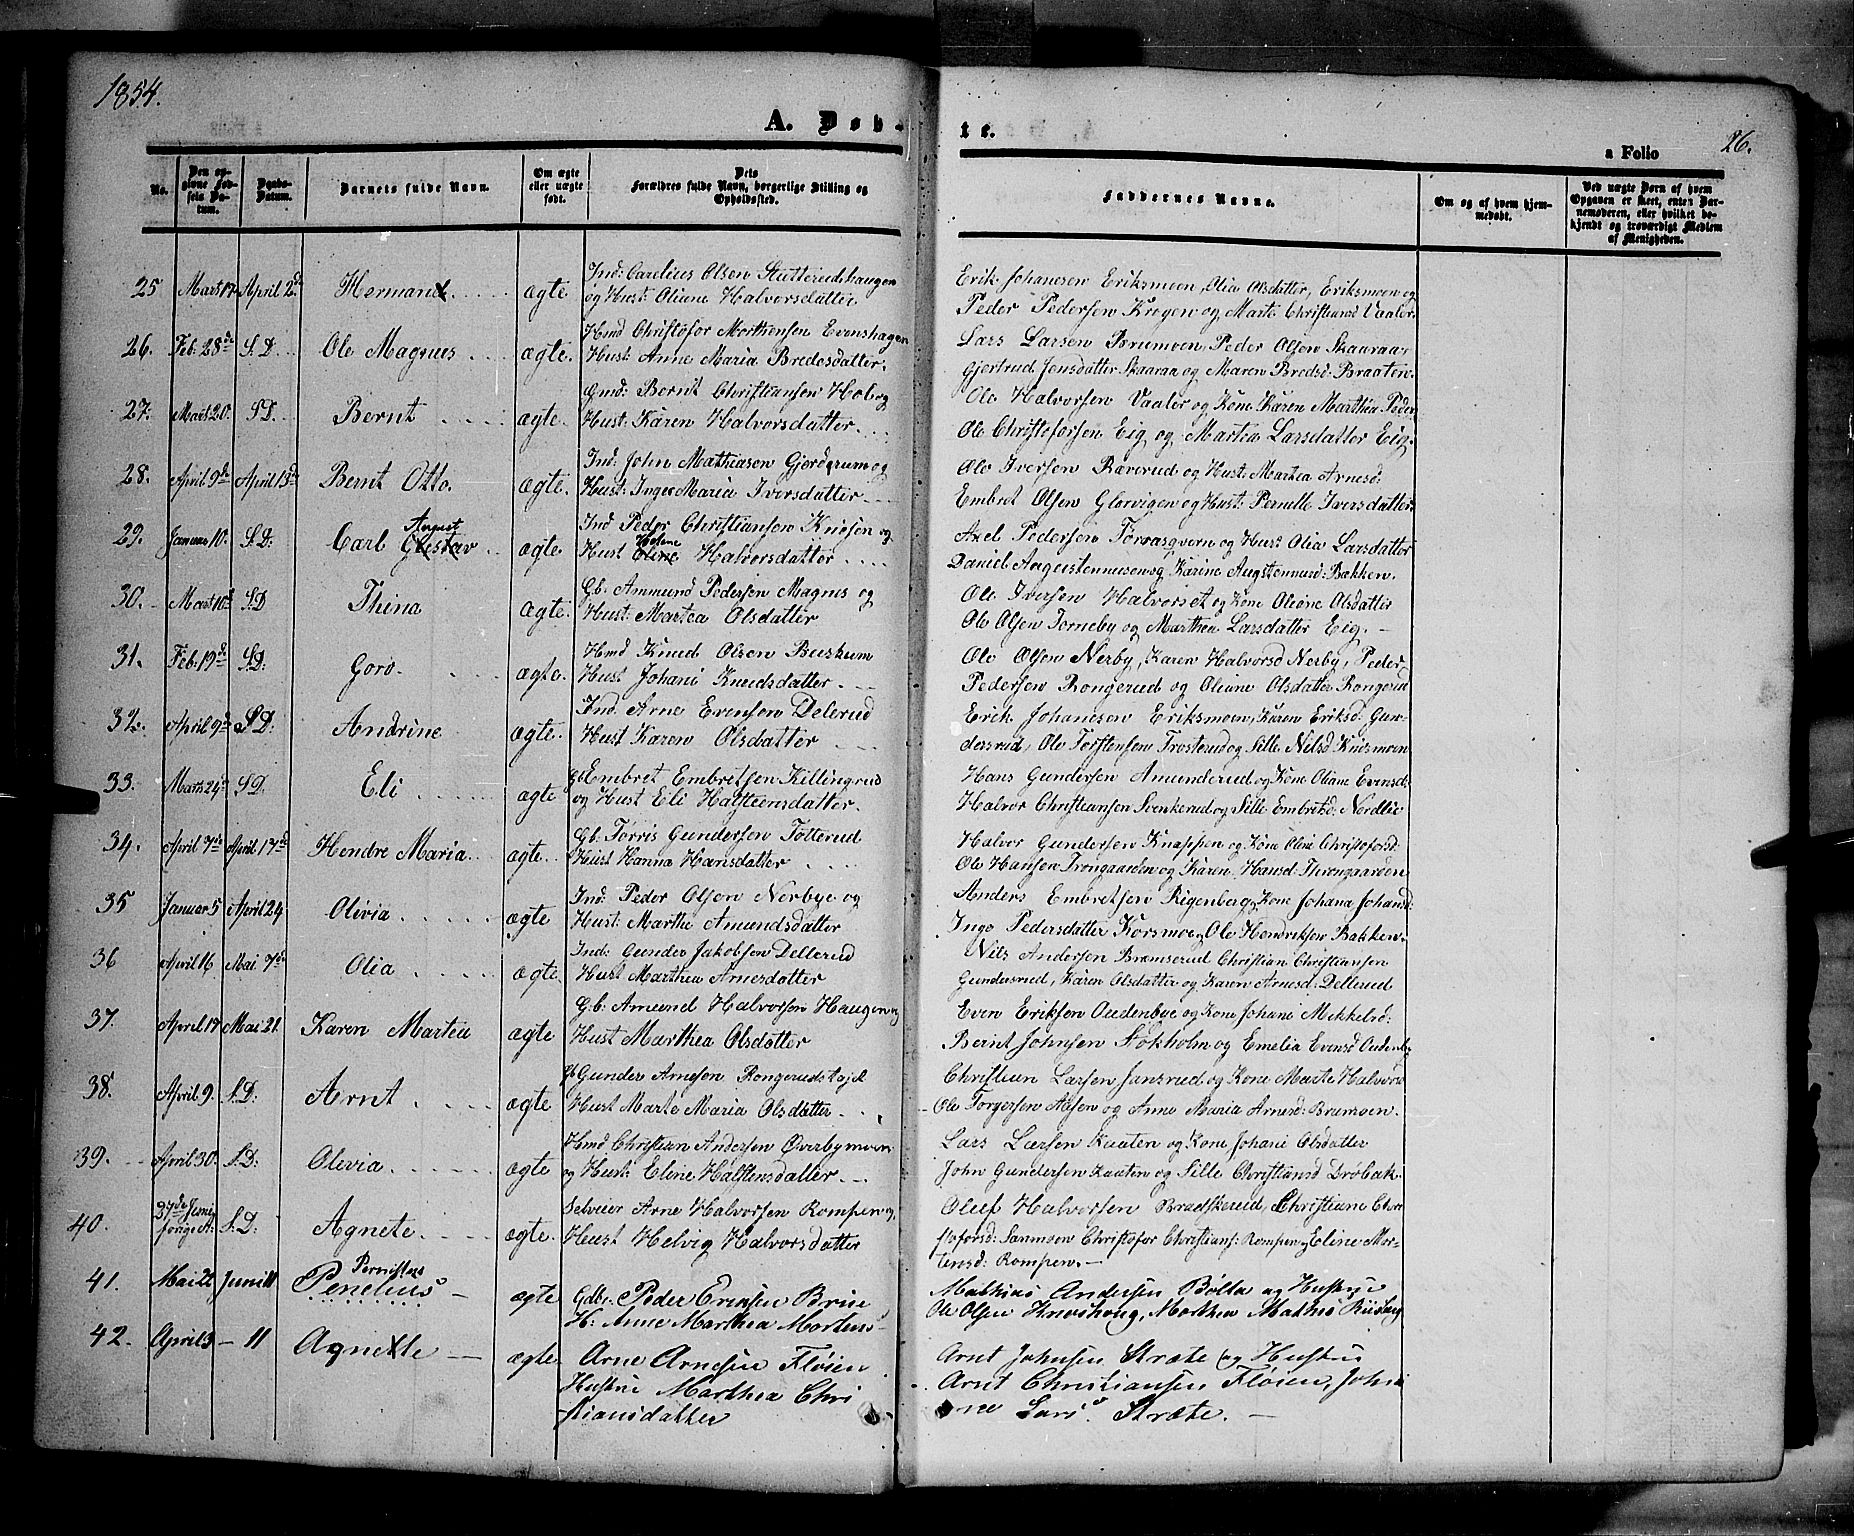 1854.
A. Døb-
te.
a Folio 26.
No.
Den op-
givne Fød-
sels Da-
tum.
Daabs-
Datum.
Barnets fulde Navn.
Om ægte
eller uægte
født.
Dets
Forældres fulde Navn, borgerlige Stilling og
Opholdssted.
Faddernes Navne.
Om og af hvem hjem-
medøbt.
Ved uægte Børn af hvem
Opgaven er skeet, enten Bar-
nemoderen, eller hvilket be-
kjendt og troværdigt Medlem
af Menigheden.
25 Mart 17 April 2d Hermand ægte Ind: Carelius Olsen Slutterudshaugen
og Hust: Oliane Halvorsdatter
Erik Johanesen Eriksmoen, Olia Olsdatter, Eriksmoen og
Peder Pedersen Krogen og Marte Christiansd Vaaler
26. Feb. 28de S.D. Ole Magnus ægte. Hmd Christofer Morthensen Evenshagen
Hust: Anne Maria Bredesdatter.
Lars Larsen Brumoen, Peder Olsen Skaaraa,
Gjertrud Jensdatter Skaaraa og Maren Bredsd: Braaten.
27. Mart 20. SD. Bernt ægte. Gmd: Bernt Christiansen Hol og
Hust: Karen Halvorsdatter.
Ole Halvorsen Vaaler og Kone Karen Marthea Peder
Ole Christofersen Eig og Martea Larsdatter Eig.
28. April 9de April 13de Bernt Otto. ægte. Ind: John Mathiasen Gjerdrum og
Hust: Inger Maria Iversdatter
Ole IversenRæverud og Hust: Martea Arnesd:
Embret Olsen Glorvigen og Hust: Pernille Iversdatter
29. Januar 10. S.D: August
Carl Gustav ægte. Ind Peder Christiansen Knusen og
Hust Oline Halvorsdatter
Axel Pedersen Torvasqvern og Hust Olia Larsdatter
Daniel Augustennusen og Karine Augustennusd: Bakken.
30. Mart 10d S.D Thina ægte. Gb. Ammund Pedersen Magnus og
Hust: Martea Olsdatter
Ole Iversen Halvorset og Kone Oliane Olsdatter
Ole Olsen Torneby og Marthea Larsdatter Eig.
31. Feb. 19de S.D: Goro. ægte. Hmd Knud Olsen Buskum
Hust Johani Knudsdatter
Ole Olsen Nerby, Karen Halvorsd Nerby, Peder
Pedersen Rongerud og Oliane Olsdatter Rongerud
32. April 9de S.D: Andrine ægte. Ind. Arne Evensen Delerud
Hust Karen Olsdatter
Erik Johanesen Eriksmoen, Karen Eriksd: Gun-
dersrud, Ole Torstensen Trosterud og Sille Nilsd Knusmoen
33. Marts 24de S.D. Eli ægte gb Embret Embretsen Killingrud
og Hust Eli Halsteensdatter.
Hans Gundersen Amunderud og Kone Oliane Evensd:
Halvor Christiansen Svenkerud og Sille Embretsd: Nordlie
34. April 7de April 17de Hendre Maria ægte. Gb: Torris Gundersen Totterud
Hust Hanna Hansdatter
Halvor Gundersen Knappen og Kone Oline Christofersd:
Ole Hansen Trongaarden og Karen Hansd: Throngaarden
35 Januar 5 April 24 Olivia ægte Ind: Peder Olsen Nerbye og
Hust: Marthe Amundsdatter
Anders Embretsen Rigenberg og Kone Johana Johansd:
Inge Pedersdatter Korsmoe, Ole Hendriksen Bakken.
36 April 16 Mai 7de Olia ægte. Ind: Gunder Jakobsen Dellerud
Hust Marthea Arnesdatter
Nils Andersen Bramserud Christian Christiansen
Gundersrud, Karen Olsdatter og Karen Arnesd: Dellerud
37. April 17 Mai 21. Karen Martea ægte G.b. Amund Halvorsen Haugen og
Hust Marthea Olsdatter
Even Eriksen Oudenbye og Kone Johane Mikkelsd:
Bernt Johnsen Stokholm og Emelia Evensd Oudenby
38. April 9. S.D. Arnt ægte gb Gunder Arnesen Rongerudstajet
Hust Marte Maria Olsdatter
Christian Larsen Jansrud og Kone Marte Halvorsd
Ole Torgersen Aasen og Anne Maria Arnesd: Brumoen.
39. April 30. S.D: Olevia ægte Hmd Christian Andersen Overbymoen
og Hust: Elene Halstensdatter
Lars Larsen Kaaten og Kone Johane Olsdatter
John Gundersen Kaaten og Sille Christiansd Drøbak
40. 27de Juni
forige A: S.D: Agnete ægte. Selveier Arne Halvorsen Rompen og
Hust Helvig Halvorsdatter
Oluf Halvorsen Bradskerud, Christiane Chri
stofersd: Sanmoen Christofer Christians: Rompen, Eline Mor-
tensd: Rompen.
41. Mai 21 Juni 11 Pernilles
Penelius ægte Gdbr. Peder Eriksen Brue
H: Anne Marthea Mortens
Mathias Andersen Bølta og Hustrue
Ole Olsen Knoshoug, Marthea Mathis Riisberg
42. April 3 - 11 Agnette ægte. Arne Arnesen Fløien
Hustrue Marthea Chri
stiansdatter
Arnt Johnsen Stræte og Hustrue
Arnt Christiansen Fløien, Joh
ane Lars. Stræte.